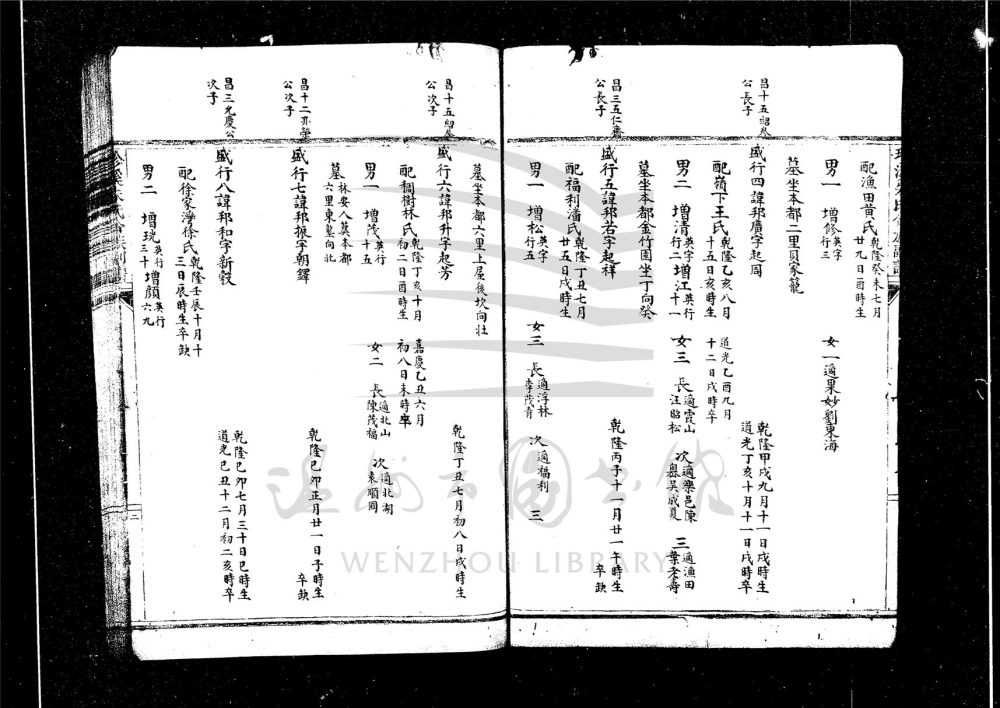 配漁田黄氏乾隆癸未七月廿九日酉時生
男一 增修英字行三 女一適果妙劉東海
墓坐本都二里貝家籠
昌十五紹叅公長子
盛行四諱邦廣字起周 乾隆甲戌九月十一日戌時生道光丁亥十月十一日戌時卒
配嶺下王氏乾隆乙亥八月十五日亥時生 道光乙酉九月十二日戌時卒
男二 增清英字行二 增江英行十一 女三 長適霞山汪昭松 次適樂邑陳吳成夏 三適漁田葉老壽
墓坐本都金竹園坐丁向癸
昌三五仁公長子
盛行五諱邦若字起祥 乾隆丙子十一月廿一午時生卒缺
配福利潘氏乾隆丁丑七月廿五日戌時生
男一 增松英字行五 女三 長適浮林李茂青 次適福利 三
墓坐本都六里上屋後坎向壯
昌十五紹叅公次子
盛行六諱邦升字起芳 乾隆丁丑七月初八日戌時生
配稠樹林氏乾隆丁亥十月初二日酉時生 嘉慶乙丑六月初八日未時卒
男一 增茂英行十五 女二 長適北山陳茂福 次適北湖袁順同
墓林安人葬本都六里東向北
昌十二亦華公次子
盛行七諱邦振字朝鐸 乾隆己卯正月廿一日子時生卒缺
昌三九慶公次子
盛行八諱邦和字新毅 乾隆己卯七月三十日巳時生道光己丑十二月初二亥時卒
配徐家淨徐氏乾隆壬辰十月十三日辰時生卒缺
男二 增珖英行三十 增顏英行六九
WENZHOU LIBRARY